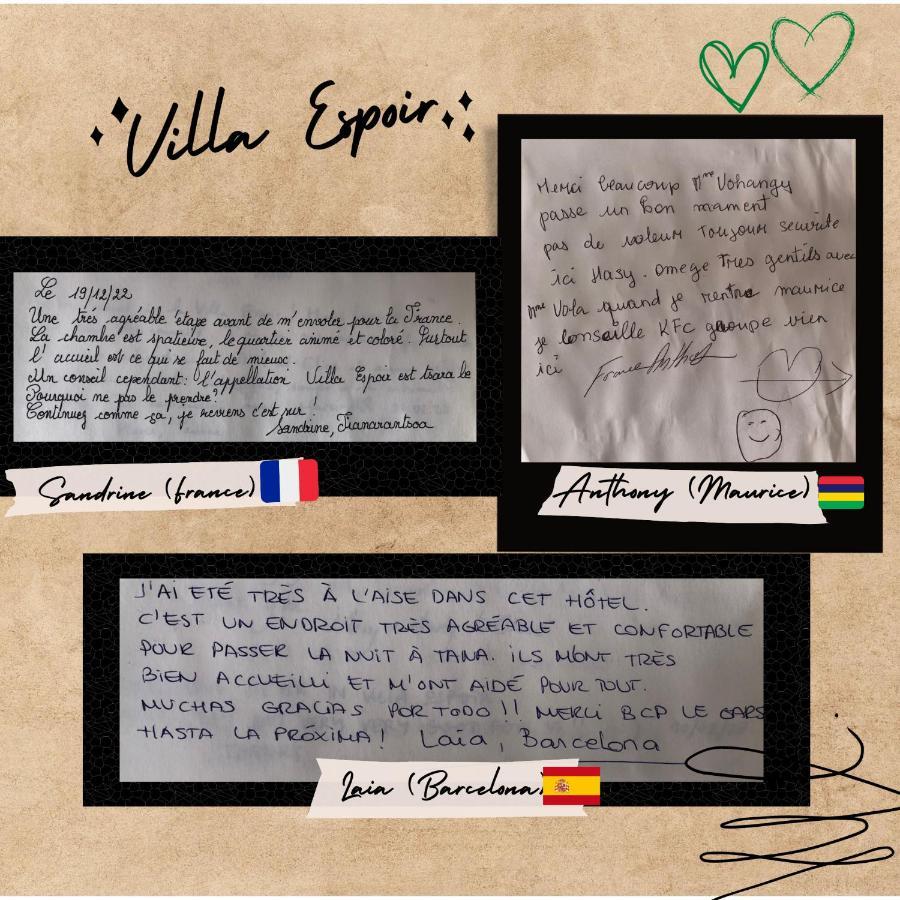 Villa Espoir
Le 19/12/22
Une très agréable étape avant de m'envoler pour la France.
La chambre est spatieuse, le quartier animé et coloré. Surtout
l'accueil est ce qui se fait de mieux.
Un conseil cependant: l'appellation Villa Espoir est tsara be
Pourquoi ne pas le prendre?
Continuez comme ça, je reviens c'est sur !
Sandrine, Fianarantsoa
Sandrine (france)
Merci beaucoup Mme Vohangy
passe un bon mament
pas de voleur Toujour securite
ici Hasy. Omega Tres gentils avec
Mme Vola quand je rentre maurice
je Conseille KFC groupe vien
ici
Anthony (Maurice)
J'AI ETÉ TRÈS À L'AISE DANS CET HÔTEL.
C'EST UN ENDROIT TRÈS AGRÉABLE ET CONFORTABLE
POUR PASSER LA NUIT À TANA. ILS M'ONT TRÈS
BIEN ACCUEILLI ET M'ONT AIDÉ POUR TOUT.
MUCHAS GRACIAS POR TODO !! MERCI BCP LE GARS
HASTA LA PRÓXIMA! Laia, Barcelona
Laia (Barcelona)